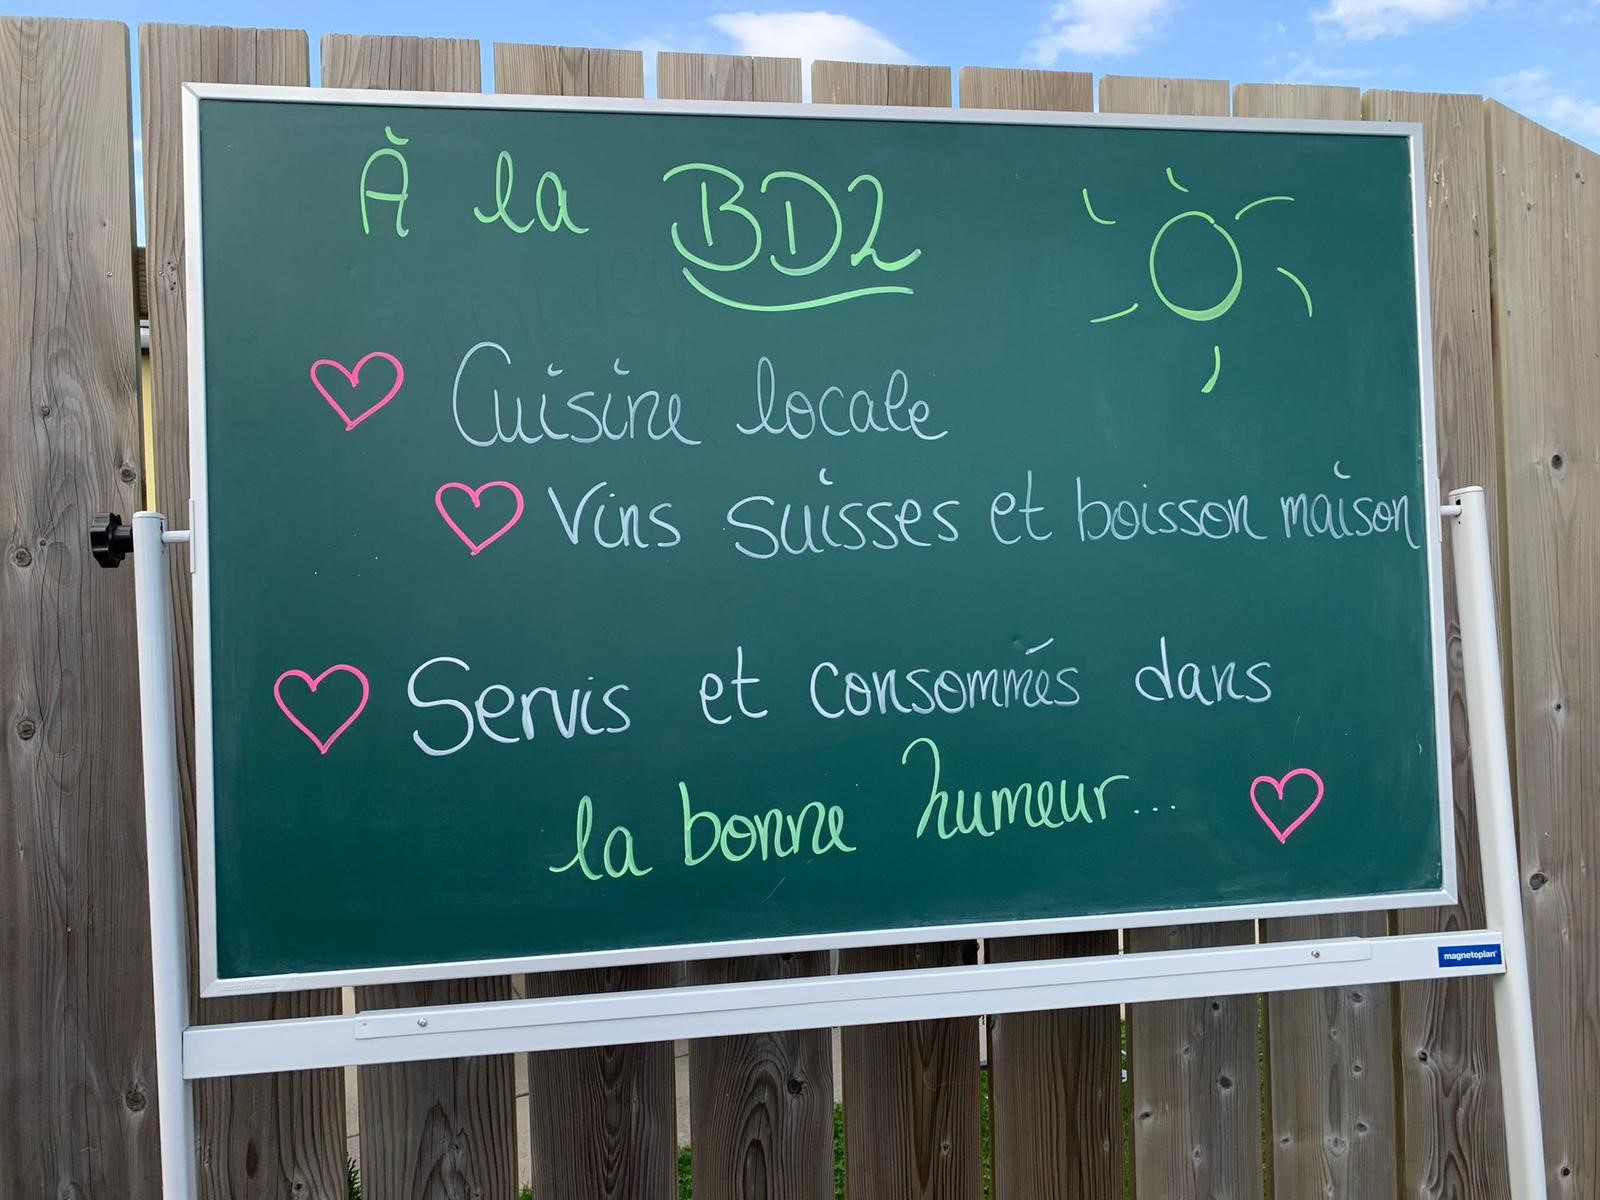 À la BD2
Cuisine locale
Vins suisses et boisson maison
Servis et consommés dans
la bonne humeur...
magnetoplan